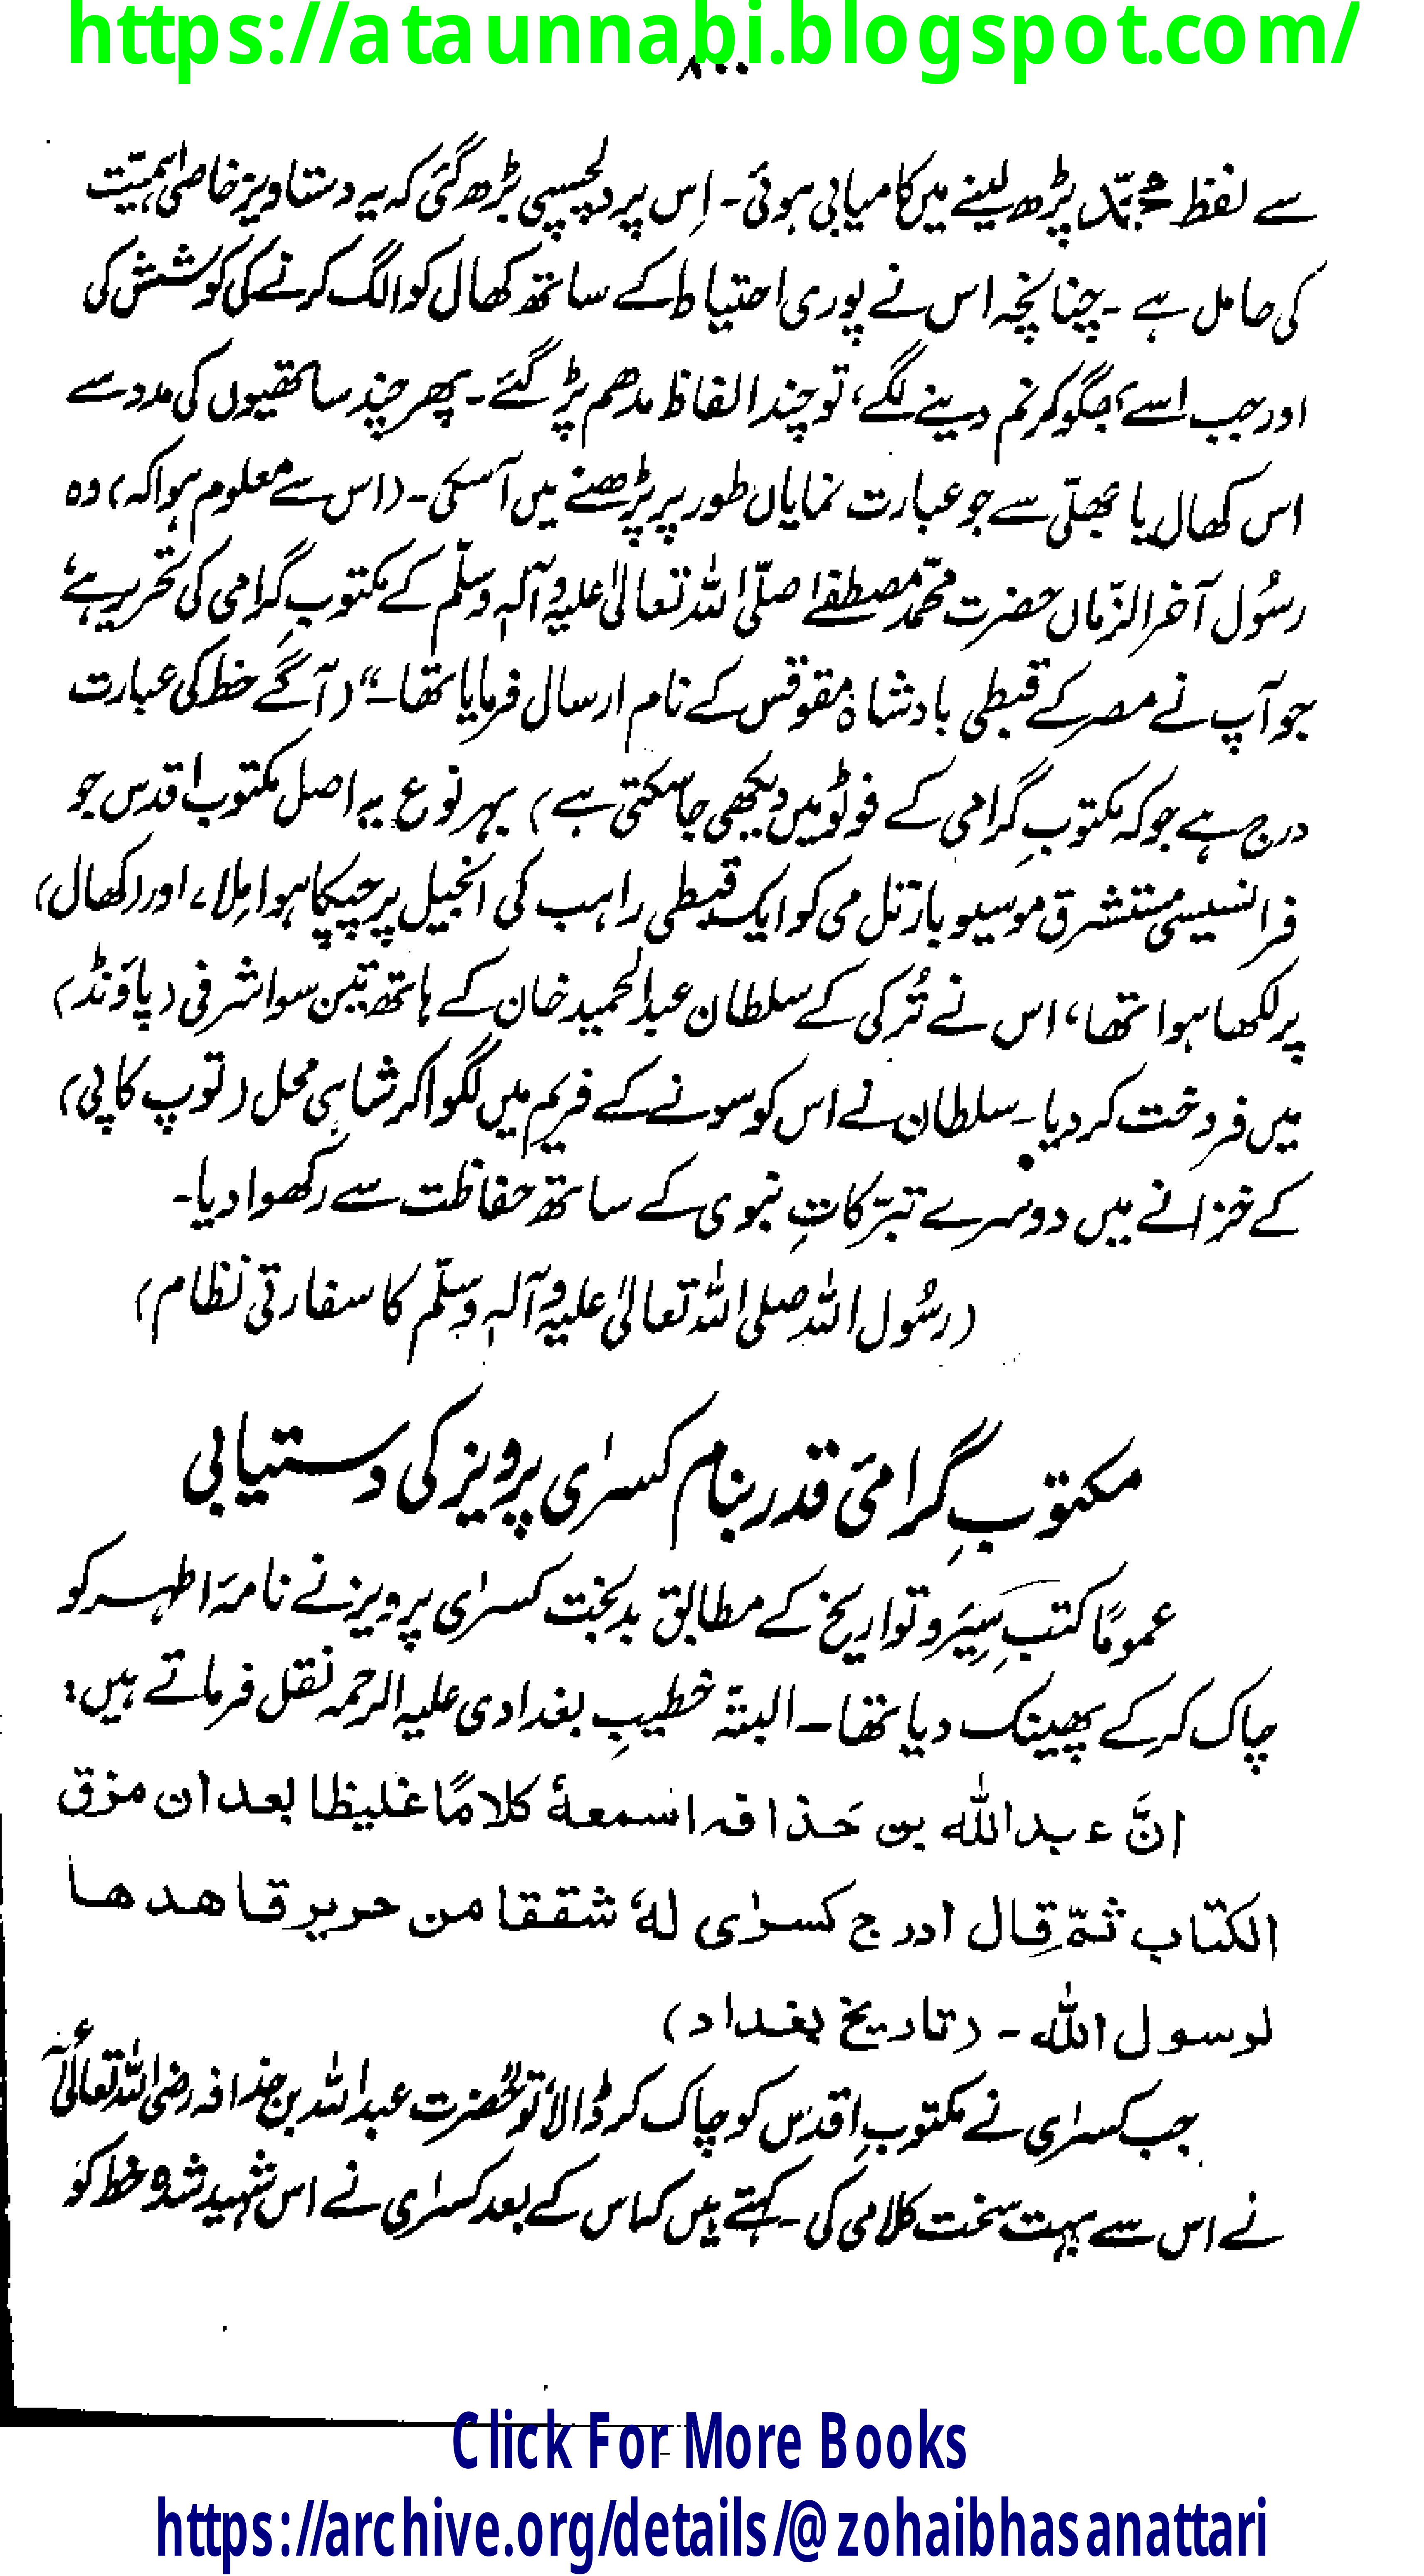 https://ataunnabi.blogspot.com/
۸۰۰
سے لفظ محمّد پڑھ لینے میں کامیابی ہوئی۔ اِس پر دلچسپی بڑھ گئی کہ یہ دستاویز خاصی اہمیّت
کی حامل ہے۔ چنانچہ اس نے پوری احتیاط کے ساتھ کھال کو الگ کرنے کی کوشش کی
اور جب اسے بھگو کر نم دینے لگے، تو چند الفاظ مدھم پڑ گئے۔ پھر چند ساتھیوں کی مدد سے
اس کھال یا جھلّی سے جو عبارت نمایاں طور پر پڑھنے میں آسکی۔ (اس سے معلوم ہوا کہ) وہ
رسُول آخر الزّماں حضرت محمّد مصطفےٰ صلّی اللہ تعالیٰ علیہ وآلہٖ وسلّم کے مکتوبِ گرامی کی تحریر ہے،
جو آپ نے مصر کے قبطی بادشاہ مقوقس کے نام ارسال فرمایا تھا۔“ (آگے خط کی عبارت
درج ہے جو کہ مکتوبِ گرامی کے فوٹو میں دیکھی جا سکتی ہے) بہر نوع یہ اصل مکتوب اقدس جو
فرانسیسی مستشرق موسیو بارتل می کو ایک قبطی راہب کی انجیل پر چپکا ہوا مِلا، اور (کھال)
پر لکھا ہوا تھا، اس نے تُرکی کے سلطان عبدالحمید خان کے ہاتھ تین سو اشرفی (پاؤنڈ)
میں فروخت کر دیا۔ سلطان نے اس کو سونے کے فریم میں لگوا کر شاہی محل (توپ کاپی)
کے خزانے میں دوسرے تبرّکاتِ نبوی کے ساتھ حفاظت سے رکھوا دیا۔
(رسُول اللہ صلی اللہ تعالیٰ علیہ وآلہٖ وسلّم کا سفارتی نظام)
مکتوبِ گرامیٔ قدر بنام کسرٰی پرویز کی دستیابی
عمومًا کتبِ سِیَر و تواریخ کے مطابق بدبخت کسرٰی پرویز نے نامۂ اطہر کو
چاک کر کے پھینک دیا تھا۔ البتہ خطیبِ بغدادی علیہ الرحمہ نقل فرماتے ہیں:
انَّ عبداللہ بن حَذافہ اسمعہٗ کلامًا غلیظا بعد ان مزق
الکتاب ثمّ قال ادرج کسرٰی لہٗ شققا من حریر قاھدھا
لرسول اللہ۔ (تاریخ بغداد)
جب کسرٰی نے مکتوبِ اقدس کو چاک کر ڈالا، تو حضرت عبداللہ بن حذافہ رضی اللہ تعالیٰ عنہ
نے اس سے بہت سخت کلامی کی۔ کہتے ہیں کہ اس کے بعد کسرٰی نے اس شہید شدہ خط کو
Click For More Books
https://archive.org/details/@zohaibhasanattari